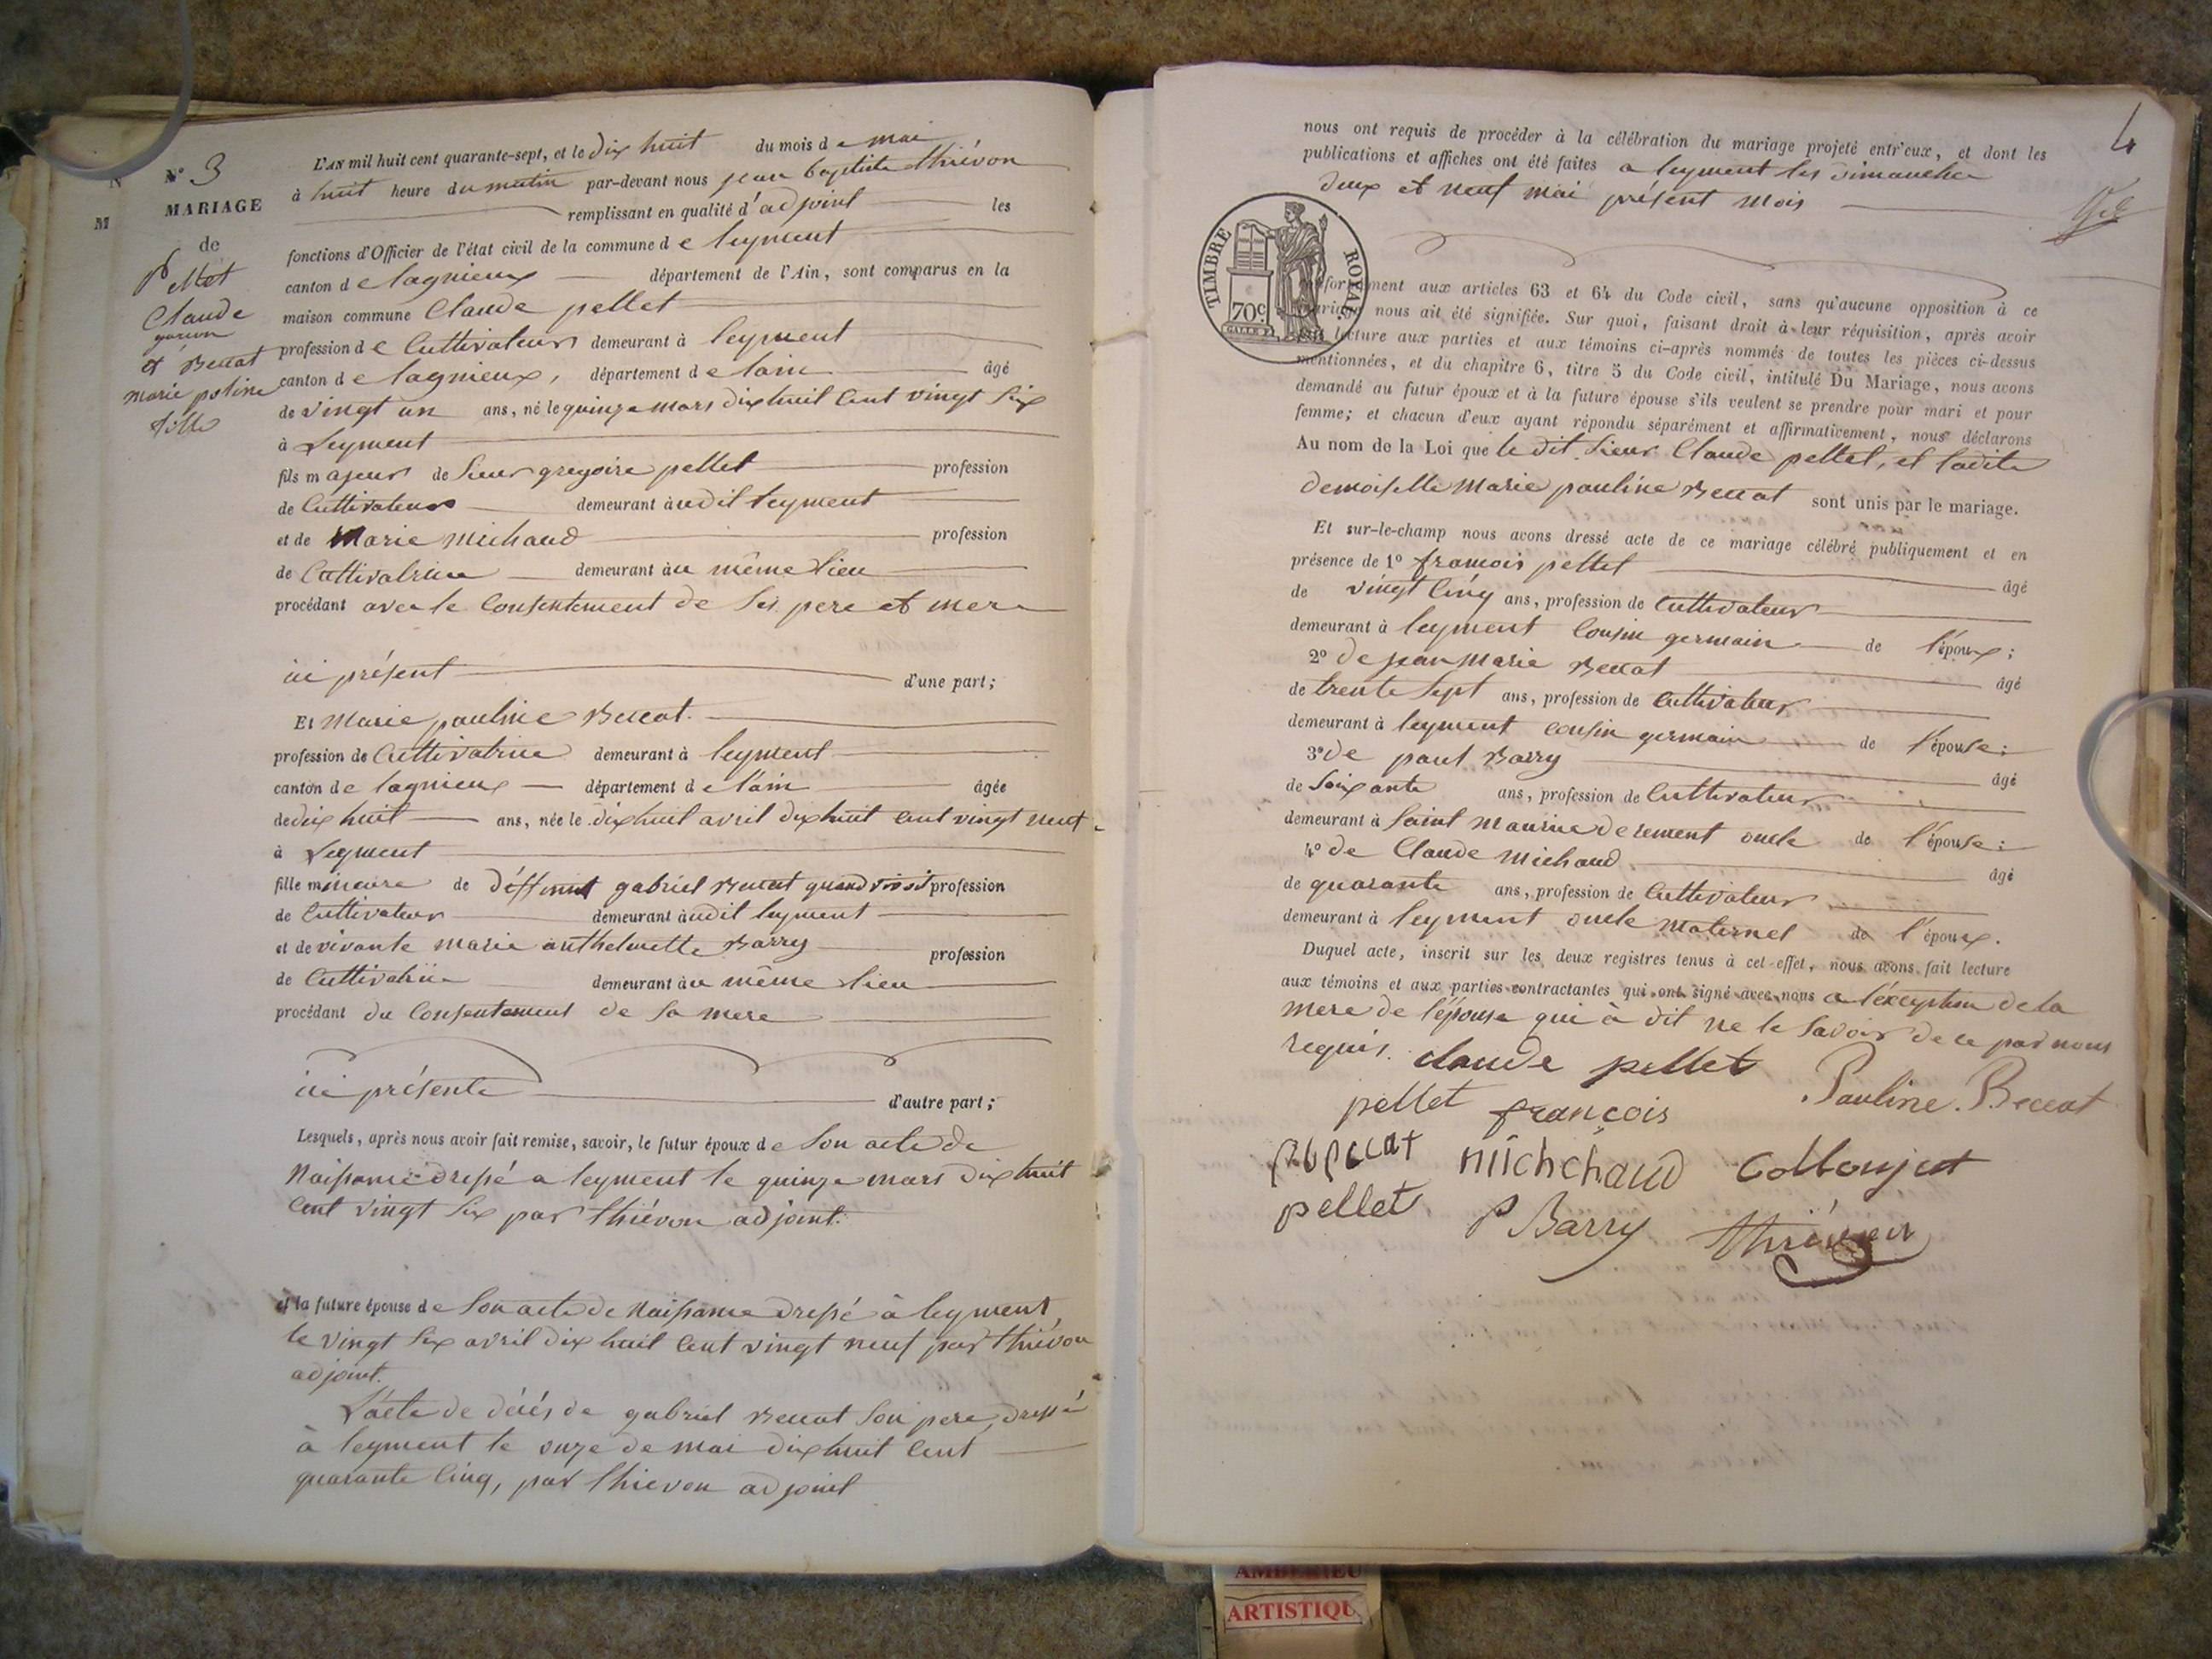 N° 3
MARIAGE
de
Pellet
Claude
garçon
et Beccat
marie poline
fille
L'AN mil huit cent quarante-sept, et le dix huit du mois de mai
à huit heure du matin par-devant nous jean baptiste thiévon
remplissant en qualité d'adjoint les
fonctions d'Officier de l'état civil de la commune de leyment
canton de lagnieux département de l'Ain, sont comparus en la
maison commune Claude pellet
profession de Cultivateur demeurant à leyment
canton de lagnieux, département de lain âgé
de vingt un ans, né le quinze mars dix huit cent vingt six
à Leyment
fils majeur de Sieur gregoire pellet profession
de Cultivateur demeurant àudit leyment
et de Marie Michaud profession
de Cultivatrice demeurant àu même lieu
procédant avec le Consentement de Ses pere et mere
ici présent d'une part;
Et Marie pauline Beccat.
profession de Cultivatrice demeurant à leyment
canton de lagnieux département de l'ain âgée
de dix huit ans, née le dix huit avril dix huit cent vingt neuf
à Leyment
fille mineure de déffunt gabriel Beccat quand vivait profession
de Cultivateur demeurant àudit leyment
et de vivante Marie anthelmette Barry profession
de Cultivatrice demeurant àu même lieu
procédant du Consentement de Sa mere
ici présente d'autre part;
Lesquels, après nous avoir fait remise, savoir, le futur époux de Son acte de
Naissance dressé a leyment le quinze mars dix huit
Cent vingt Six par thiévon adjoint.
et la future épouse de Son acte de Naissance dressé à leyment
le vingt Six avril dix huit Cent vingt neuf par thiévon
adjoint.
L'acte de décés de gabriel Beccat Son pere, dressé
à leyment le onze de mai dix huit Cent
quarante Cinq, par thievon adjoint
4
nous ont requis de procéder à la célébration du mariage projeté entr'eux, et dont les
publications et affiches ont été faites a leyment les dimanche
deux et neuf mai présent mois
TIMBRE ROYAL
70c
forment aux articles 63 et 64 du Code civil, sans qu'aucune opposition à ce
mariage nous ait été signifiée. Sur quoi, faisant droit à leur réquisition, après avoir
fait lecture aux parties et aux témoins ci-après nommés de toutes les pièces ci-dessus
mentionnées, et du chapitre 6, titre 5 du Code civil, intitulé Du Mariage, nous avons
demandé au futur époux et à la future épouse s'ils veulent se prendre pour mari et pour
femme; et chacun d'eux ayant répondu séparément et affirmativement, nous déclarons
Au nom de la Loi que le dit Sieur Claude pellet, et ladite
demoiselle Marie pauline Beccat sont unis par le mariage.
Et sur-le-champ nous avons dressé acte de ce mariage célébré publiquement et en
présence de 1° francois pellet âgé
de vingt Cinq ans, profession de Cultivateur
demeurant à leyment Cousin germain de l'époux;
2° de jean Marie Beccat âgé
de trente Sept ans, profession de Cultivateur
demeurant à leyment cousin germain de l'épouse;
3° de paul Barry âgé
de Soixante ans, profession de Cultivateur
demeurant à Saint Maurice de rement oncle de l'épouse;
4° de Claude Michaud âgé
de quarante ans, profession de Cultivateur
demeurant à leyment oncle Maternel de l'époux.
Duquel acte, inscrit sur les deux registres tenus à cet effet, nous avons fait lecture
aux témoins et aux parties contractantes qui ont signé avec nous a l'éxception de la
mere de l'épouse qui à dit ne le Savoir de ce par nous
requis. claude pellet
Pauline Beccat
pellet françois
michehaud Collonjat
pellet P Barry thiévon
AMBERIEU
ARTISTIQU